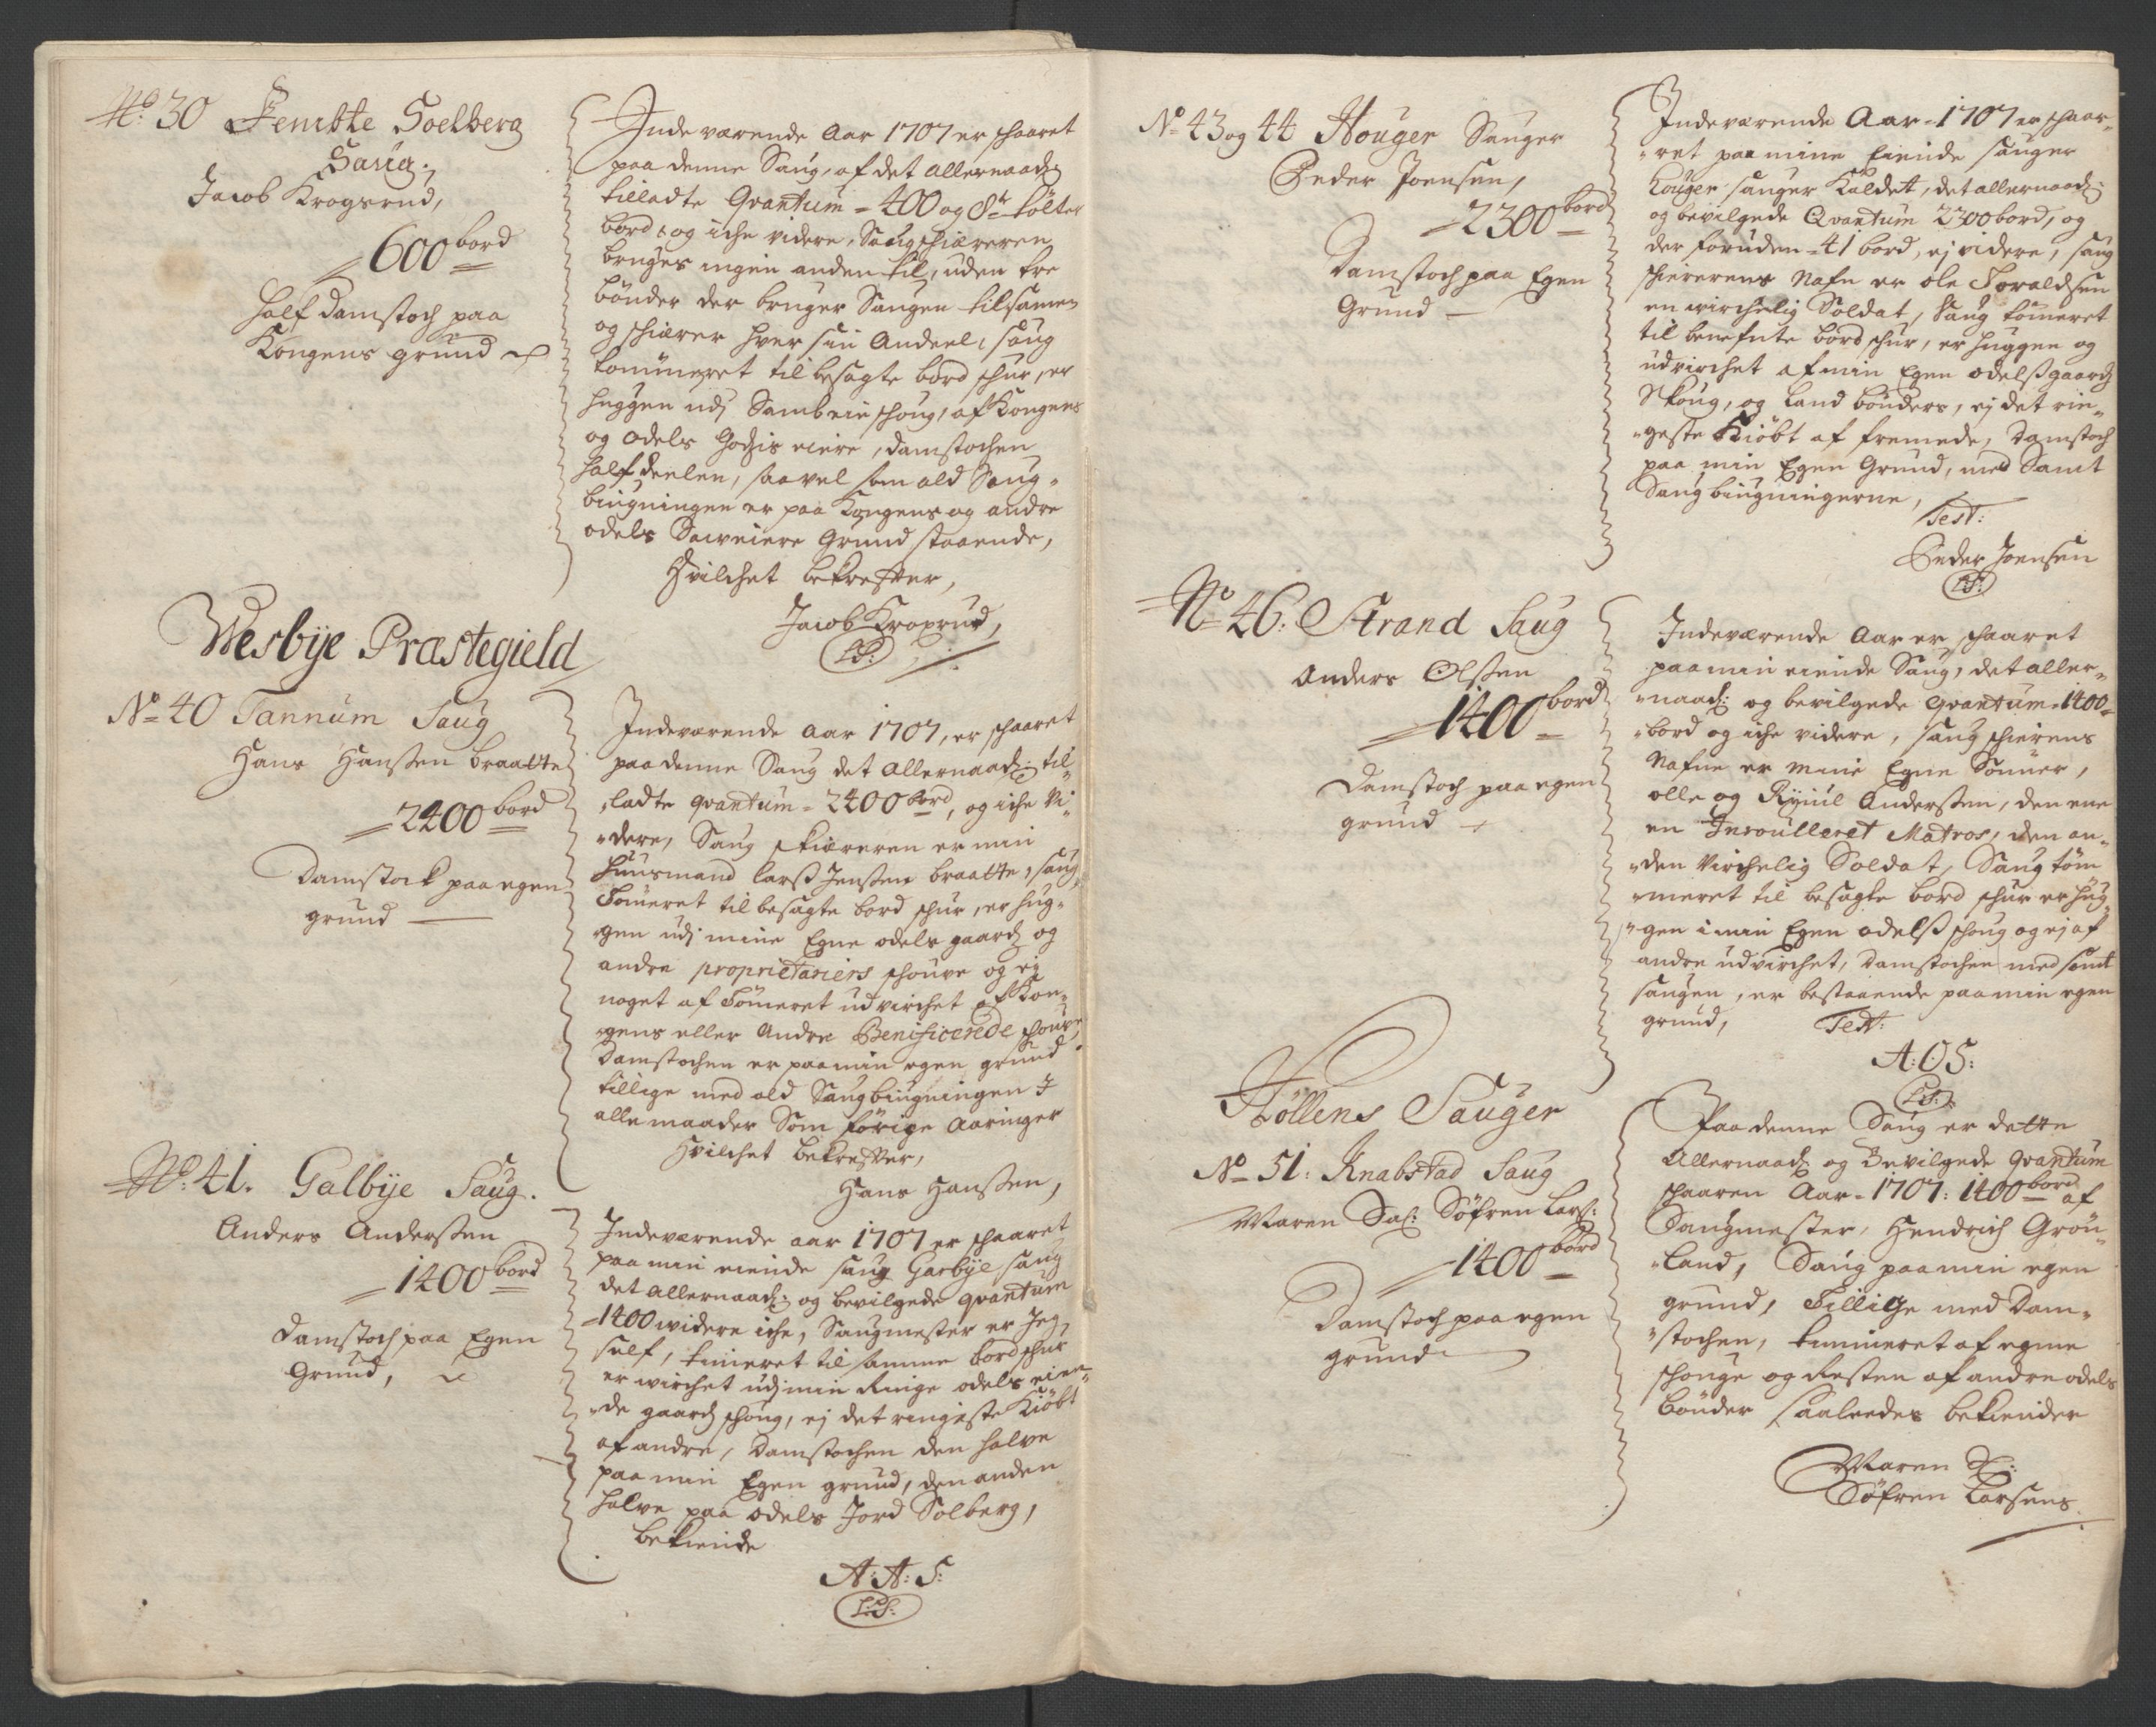 No: 30 Fembte Soelberg
Saug.,
Jacob Krogsrud,
600 bord
half damstoch paa
Kongens grund
Inde værende Aar 1707 er schaaret
paa denne Saug, af det allernaadg
tilladte Qvantum = 400 og 8te tölter
bord, og iche videre, Saugschiæreren
bruges ingen anden til, uden tre
bönder der bruger Saugen tilsamen
og schiærer hver sin Andeel, saug
tommeret til besagte bord schur, er
huggen udj Sambeie schoug, af Kongens
og odels Godzis eiere, damstochen
halfdeelen, saavel som ald Saug-
biugningen er paa Kongens og andre
odels Saveiere Grund staaende,
Hvilchet bekrefter,
Jacob Kroxrud,
LS:
Wesbÿe Præstegield
No= 40 Tannum Saug
Hans Hanssen braatte
= 2400 bord
Damstock paa egen
grund
Indeværende Aar 1707, er schaaret
paa denne Saug det allernaadg: til-
ladte qvantum = 2400 bord, og iche Vi-
dere, Saug skiæreren er min
Huusmand Larss Jenssen braatte, saug
Tömeret til besagte bord schur, er hug-
gen udj mine Egne odels gaard og
andre proprietariers schouve og ej
noget af Tömeret udvirchet af Kon-
gens eller Andre Benificerede schouve,
Damstochen er paa min egen grund
tillige med ald Saugbiugningen I
alle maader Som forige Aaringer
Hvilchet bekrefter,
Hans Hanssen,
No: 41. Galbÿe Saug.
Anders Anderssen
= 1400 bord
Damstoch paa Egen
Grund,
Indeværende aar 1707 er schaaret
paa min eiende saug Garbÿe saug
det allernaadg: og bevilgede qvantum
= 1400 widere iche, Saugmester er Jeg
self, tömeret til samme bordschur
er wirchet udj min Ringe odels eien-
de gaards schoug, ej det ringeste Kiöbt
af andre, Damstochen den halve
paa min Egen grund, den anden
halve paa odels Jord Solberg,
bekiende
A: A: S:
L:S:
No= 43 og 44 Houger Sauger
Peder Joensen,
= 2300 bord
Damstoch paa Egen
Grund
Indeværende Aar = 1707 er schaar-
ret paa mine Eiende sauger
Houger sauger Kaldet, det allernaadg:
og bevilgede Qvantum 2300 bord, og
der foruden = 41 bord, ej videre, saug
schiererens Nafn er ole Toraldsen
en wirchelig Soldat, Saug tömeret
til benefnte bord schur, er huggen og
udvirchet af min Egen odelss gaards
Skoug, og Land bönders, ej det rin-
geste Kiöbt af fremede, Damstoch
paa min Egen Grund, med Samt
Saugbiugningerne,
Test:
Peder Joensen
LS:
No= 46: Strand Saug
Anders Olssen
= 1400 bord
Damstoch paa egen
grund
Indeværende Aar er schaaret
paa min eiende Saug, det aller-
naadg: og bevilgede qvantum = 1400
bord og iche videre, saug schierens
Nafne er mine Egne Sönner,
olle og Kiuul Anderssen, den ene
en Inroulleret Matros, den an-
den Virchelig Soldat, Saug töm-
meret til besagte bord schur er hug-
gen i min Egen odelss schoug og ej af
andre udvirchet, Damstochen med samt
saugen, er bestaaende paa min egen
grund,
Test:
A: O S:
LS:
Höllens Sauger
No= 51: Knabstad Saug
Maren Sal: Söfren Lars:
= 1400 bord
Damstoch paa egen
grund
Paa denne Saug er dette
Allernaadg og Bevilgede qvantum
schaaren Aar = 1707: 1400 bord af
Saugmester, Hendrich Grön-
land, Saug paa min egen
grund, Tillige med Dam-
stochen, tömmeret af egne
schouge og Resten af andre odels
bönder saaledes bekiender
Maren S:
Söfren Larsens